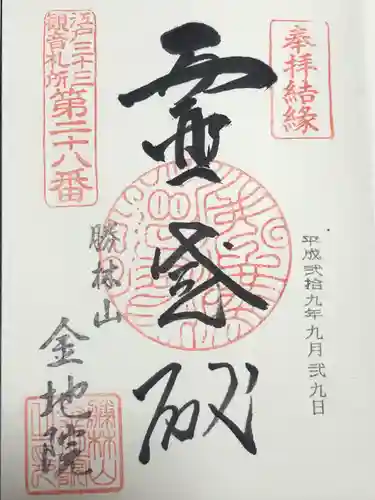 奉拝結縁
平成弐拾九年九月弐九日
霊感殿
江戸三十三
観音札所
第二十八番
勝林山
金地院
勝林山